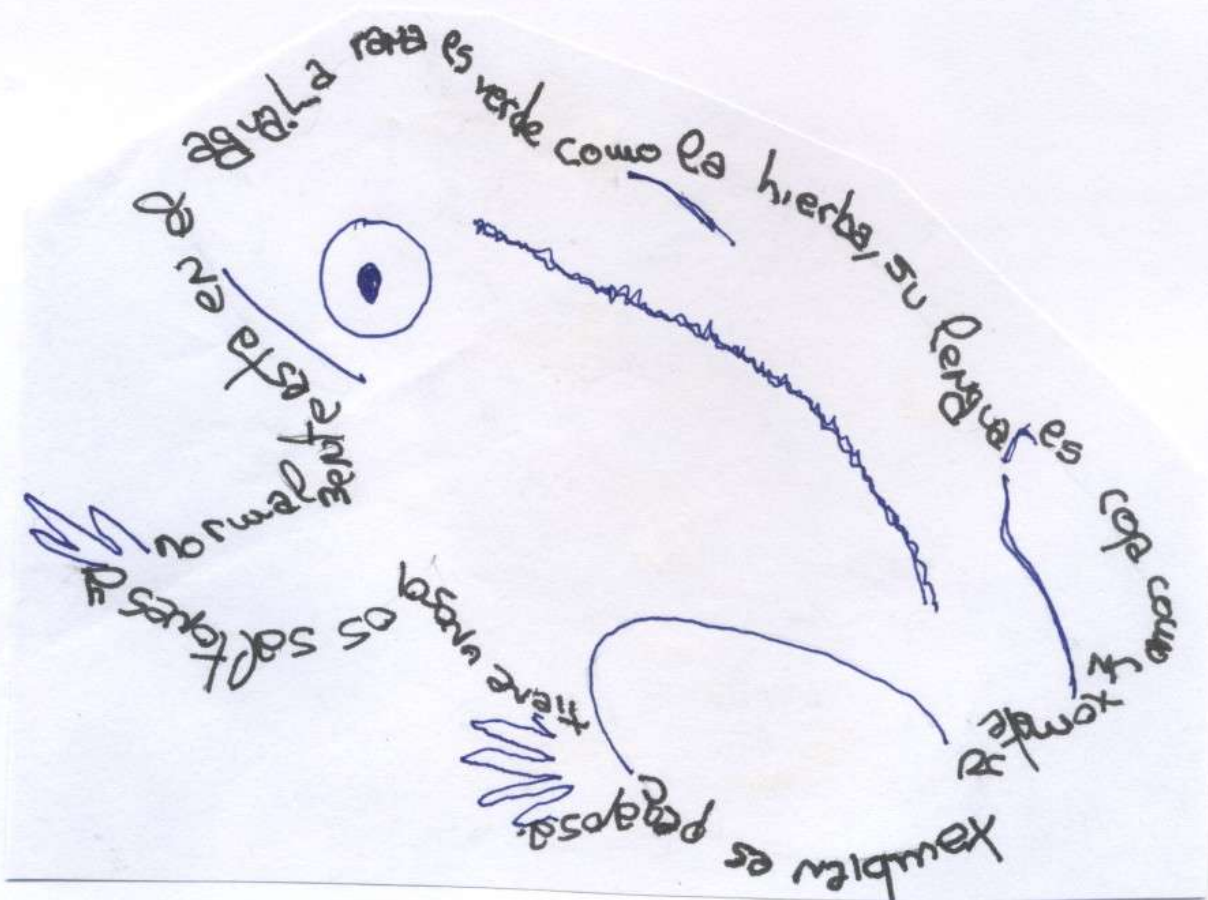 La rana es verde como la hierba, su lengua es roja como un tomate también es pegajosa. tiene normalmente esta en el agua.